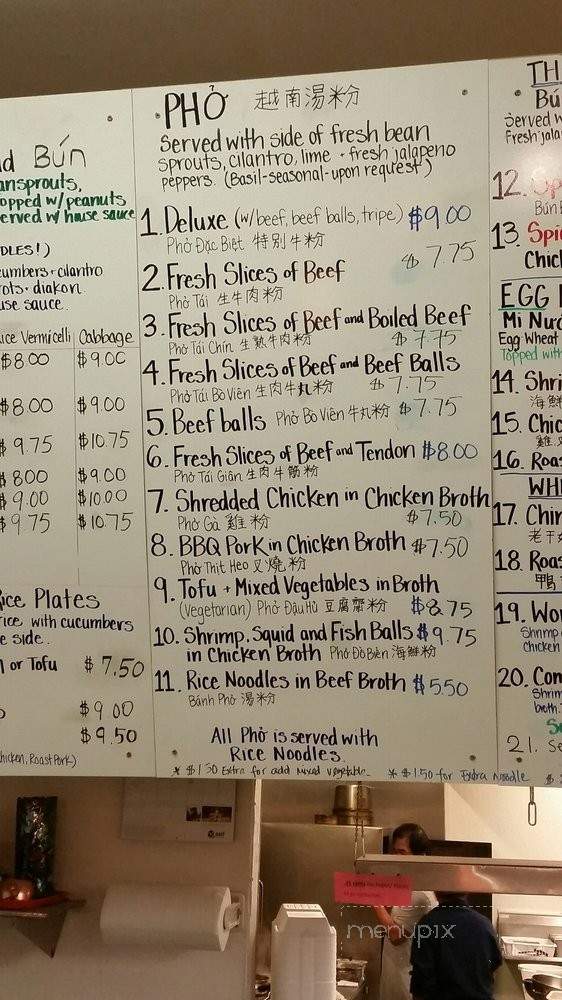 Bún
ansprouts,
opped w/peanuts
erved w/house sauce
DLES!)
cumbers + cilantro
rots + diakon
use sauce.
ice Vermicelli Cabbage
$8.00 $9.00
$8.00 $9.00
$9.75 $10.75
$8.00 $9.00
$9.00 $10.00
$9.75 $10.75
Rice Plates
rice with cucumbers
e side.
n or Tofu $7.50
$9.00
$9.50
chicken, Roast Pork)
PHỞ 越南湯粉
Served with side of fresh bean
sprouts, cilantro, lime + fresh jalapeno
peppers. (Basil-seasonal-upon request)
1. Deluxe (w/beef, beef balls, tripe) $9.00
Phở Đặc Biệt 特別牛粉
$7.75
2. Fresh Slices of Beef
Phở Tái 生牛肉粉
3. Fresh Slices of Beef and Boiled Beef
Phở Tái Chín 生熟牛肉粉 $7.75
4. Fresh Slices of Beef and Beef Balls
Phở Tái Bò Viên 生肉牛丸粉 $7.75
5. Beef balls Phở Bò Viên 牛丸粉 $7.75
6. Fresh Slices of Beef and Tendon $8.00
Phở Tái Giân 生肉牛筋粉
7. Shredded Chicken in Chicken Broth
Phở Gà 雞粉 $7.50
8. BBQ Pork in Chicken Broth $7.50
Phở Thịt Heo 叉燒粉
9. Tofu + Mixed Vegetables in Broth
(Vegetarian) Phở Đậu Hủ 豆腐齋粉 $8.75
10. Shrimp, Squid and Fish Balls $9.75
in Chicken Broth Phở Đồ Biển 海鮮粉
11. Rice Noodles in Beef Broth $5.50
Bánh Phở 湯粉
All Phở is served with
Rice Noodles.
* $1.50 Extra for add Mixed vegetable. * $1.50 for Extra Noodle
TH
Bú
Served w
Fresh jala
12. Sp
Bún B
13. Spic
Chick
EGG
Mi Nướ
Egg Wheat
Topped with
14. Shri
海鮮
15. Chic
雞
16. Roas
WH
17. Chin
老干
18. Roas
鴨
19. Wo
Shrimp
Chicken
20. Com
Shrim
broth.
21. Se
menupix